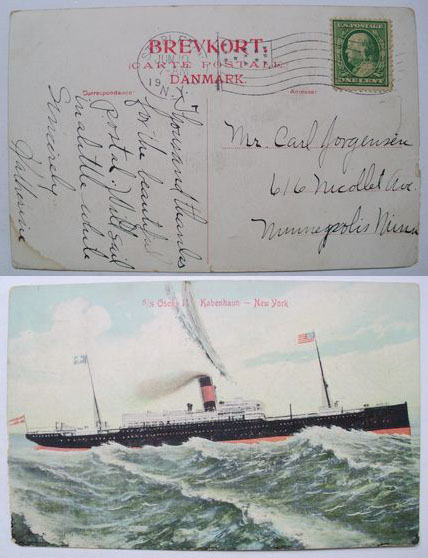 BREVKORT.
CARTE POSTALE
DANMARK.
Correspondance:
Adresse:
JUN
19
N.
U.S. POSTAGE
ONE CENT
Thousand thanks
for the beautiful
postal. Will sail
in a little while
Sincerely
Mr. Carl Jorgensen
616 Nicollet Ave.
Minneapolis Minn
S/s Oscar II Kobenhavn — New York